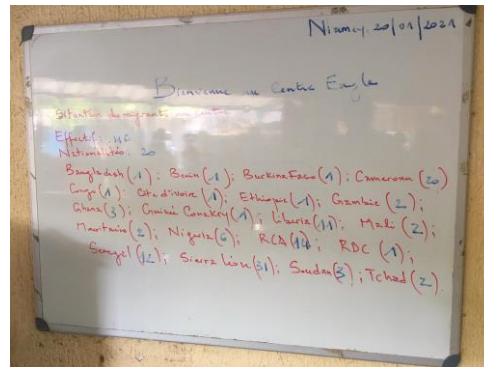 Niamey 20/01/2021
Bienvenue au Centre Eagle
Situation de migrants au Centre
Effectif: 116
Nationalités: 20
Bangladesh (1); Benin (1); Burkina Faso (1); Cameroun (20)
Congo (1); Cote d'ivoire (1); Ethiopie (1); Gambie (2);
Ghana (3); Guinée Conakry (1); Liberia (11); Mali (2);
Mauritanie (2); Nigeria (6); RCA (14); RDC (1);
Senegal (12); Sierra Lion (31); Soudan (3); Tchad (2)